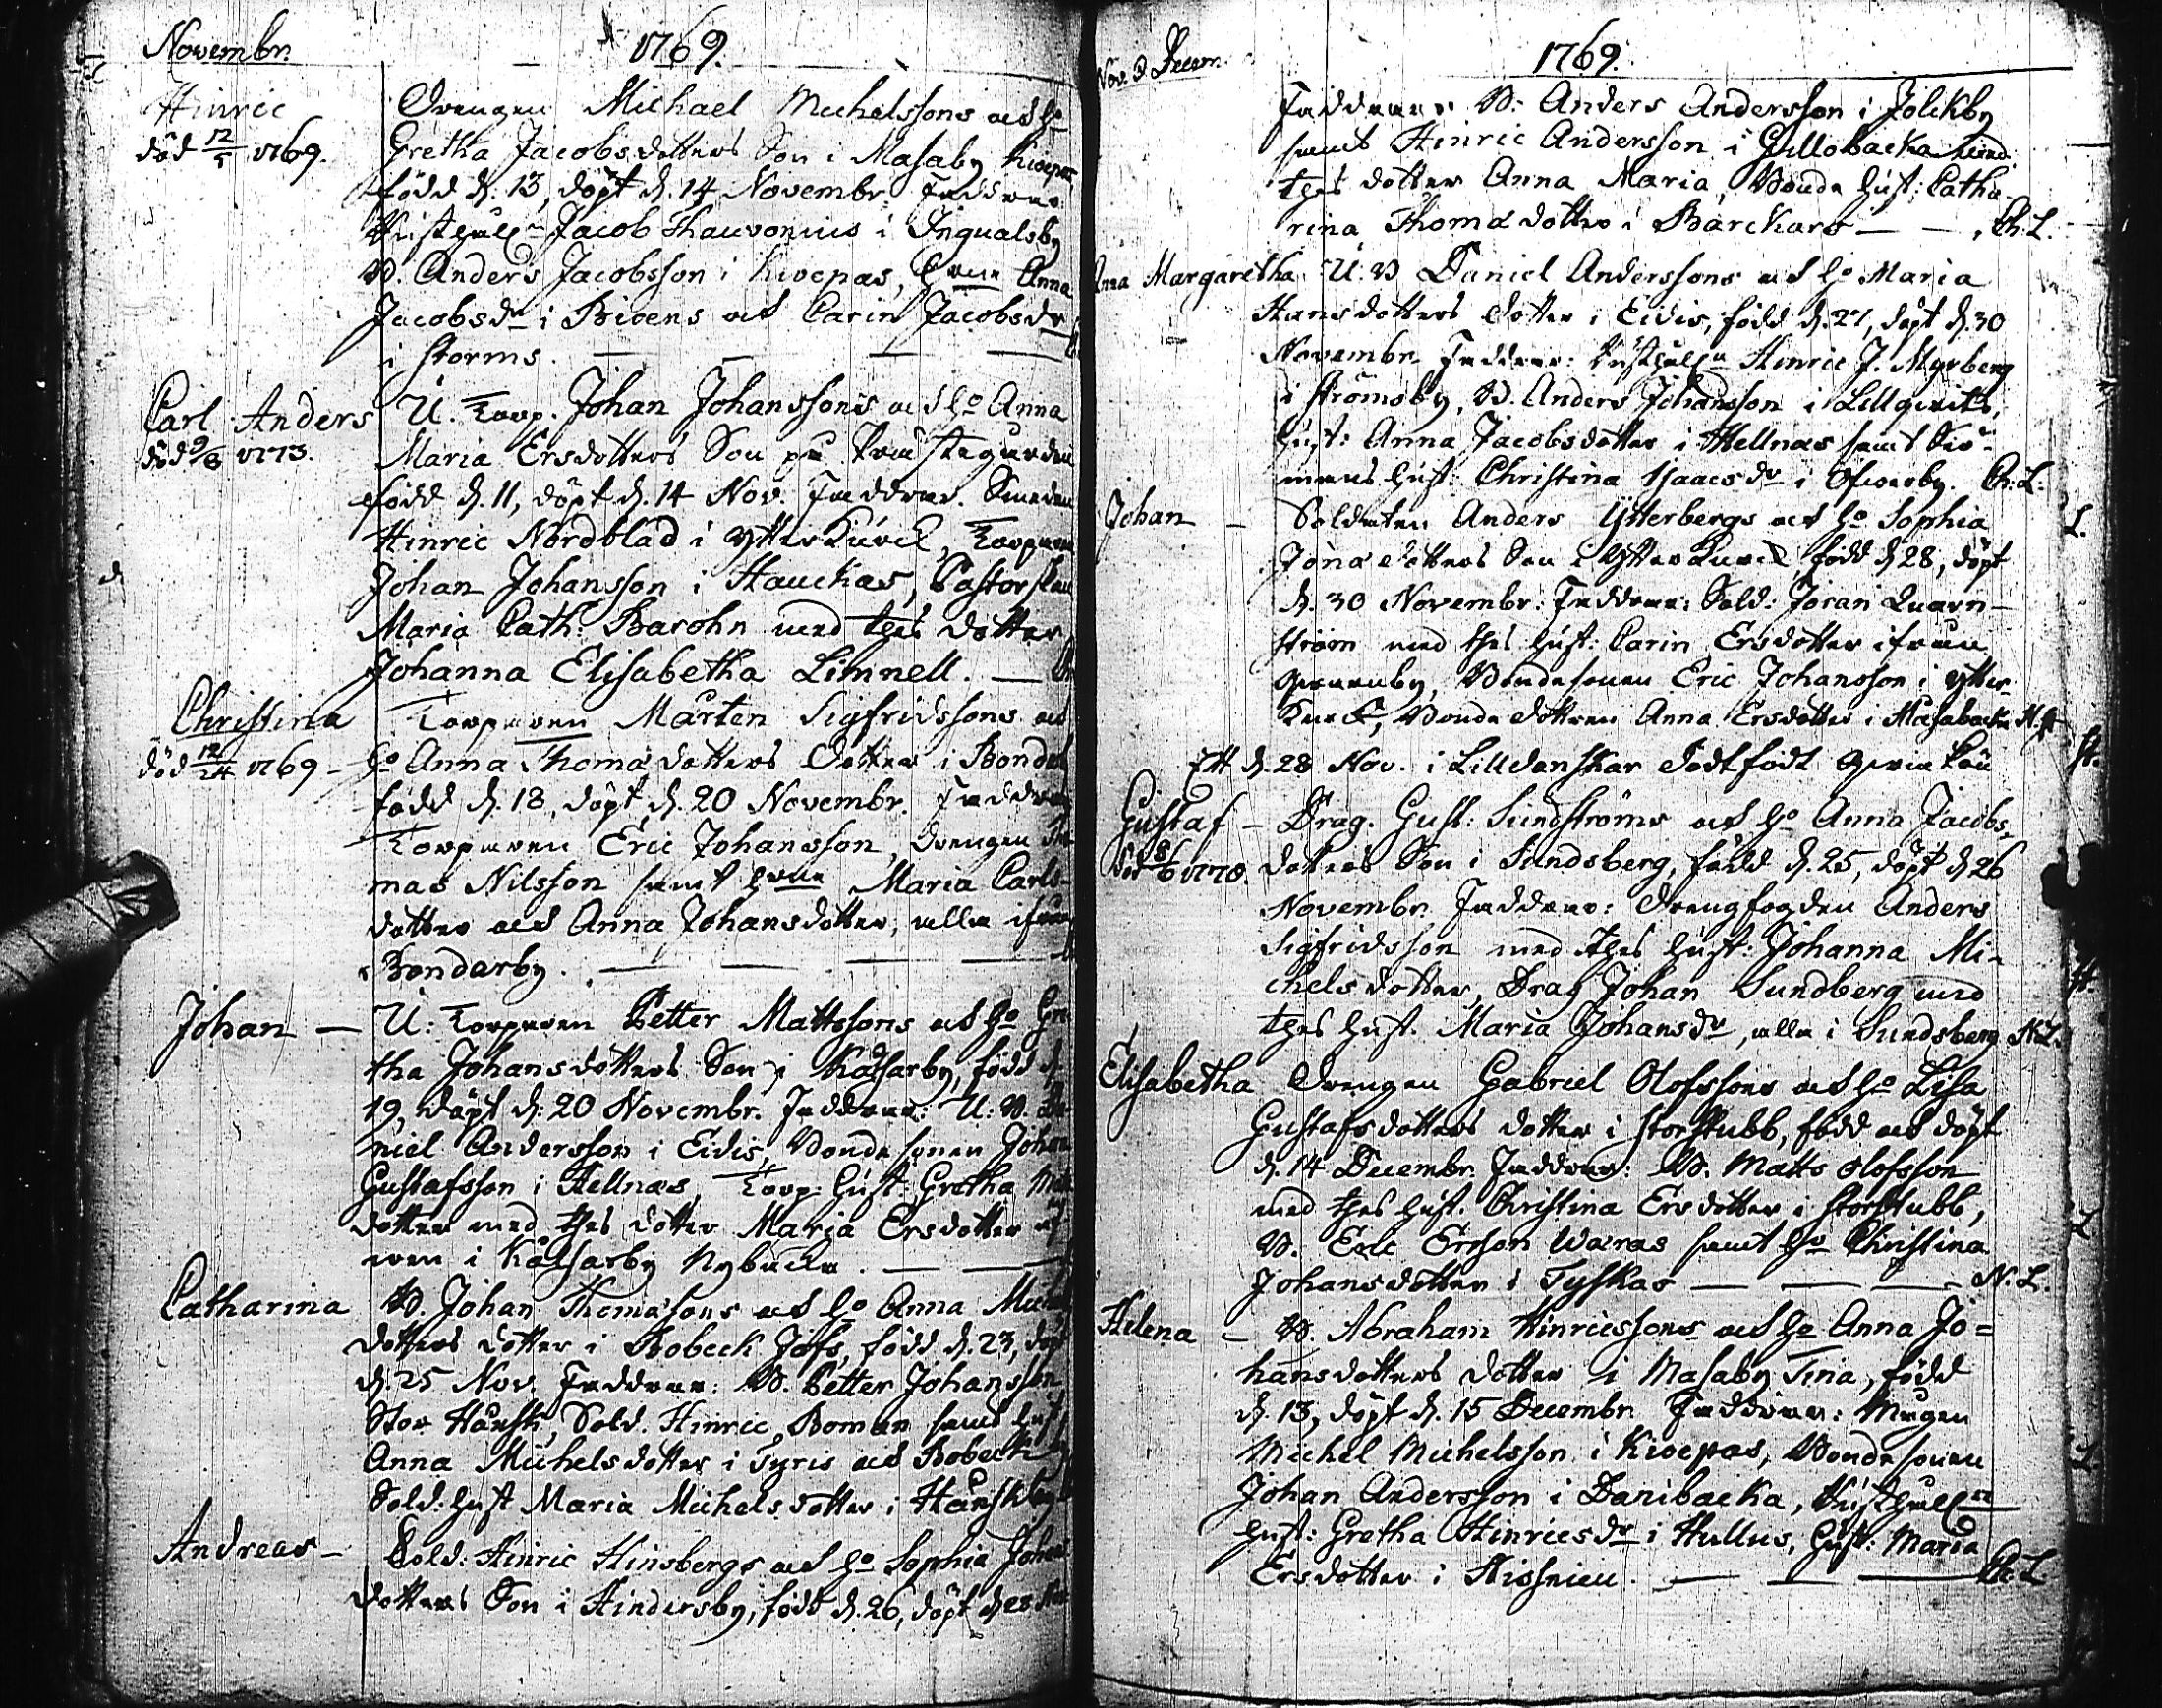 Novembr. 1769.
Hinric
död 12/5 1769.
Drengen Michael Michelssons och H:o
Gretha Jacobsdotters Son i Masaby Kivepas
född d. 13, döpt d. 14 Novembr: Faddrar.
Jacob Thauvonius i Ingvalsby
B. Anders Jacobsson i Kivepas, Anna
Jacobsdr i Bivens och Carin Jacobsdr
i Storms.
Carl Anders
död 9/8 1773.
U. Torp. Johan Johanssons och H:o Anna
Maria Ersdotters Son på Prästegården
född d. 11, döpt d. 14 Nov. Faddrar. Smeden
Hinric Nordblad i Ytter Kurck, Torparen
Johan Johansson i Hauckas, Pastorskan
Maria Cath: Barohn med thes dotter
Johanna Elisabetha Limnell.
Christina
död 12/24 1769
Torparen Mårten Sigfridssons och
H:o Anna Thomæ dotters Dotter i Bondar
född d. 18, döpt d. 20 Novembr. Faddrar
Torparen Eric Johansson, Drengen Tho
mas Nilsson samt Maria Carls-
dotter och Anna Johansdotter, alla ifrån
Bondarby.
Johan
U: Torparen Petter Mattssons och H:o Gre
tha Johansdotters Son i Kälsarby, född d.
19, döpt d. 20 Novembr. Faddrar: U: B. Da
niel Andersson i Eidis, Bonde sonen Johan
Gustafsson i Hellnas, Torp: Hust: Gretha Mats
dotter med thes dotter Maria Ersdotter
i Kälsarby Nybacka.
Catharina
B. Johan Thomæsons och H:o Anna Michels
dotters dotter i Bobeck Jofs, född d. 23, döpt
d. 25 Nov. Faddrar: B. Petter Johansson
Stor Hansk, Sold. Hinric Boman samt Hust
Anna Michelsdotter i Tyris och Bobeck
Sold: Hust Maria Michelsdotter i Hanskby
Andreas
Sold: Hinric Hinsbergs och H:o Sophia Johans
dotters Son i Hindersby, född d. 26, döpt d 28 Nov
Nov. & Decem. 1769.
Faddrar B: Anders Andersson i Jolckby
samt Hinric Andersson i Gillobacka med
thes dotter Anna Maria, Bonde hust: Catha
rina Thomæ dotter i Bärckars Ch: L.
Anna Margaretha U: B Daniel Anderssons och H:o Maria
Hansdotters dotter i Eidis, född d. 27, döpt d. 30
Novembr. Faddrar: Hinric J. Myrberg
i Strömsby, B. Anders Johansson i Lillqvists,
Hust: Anna Jacobsdotter i Hellnas samt
Hust: Christina Isaacs dr i Ch: L:
Johan
Soldaten Anders Ytterbergs och H:o Sophia
Jonæ dotters Son i Ytter Kurck född d 28, döpt
d. 30 Novembr: Faddrar: Sold: Joran Quarn-
ström med thes hust: Carin Ersdotter ifrån
Qvarnby, Bondesonen Eric Johansson i Ytter
Kurck, Bonde dottren Anna Ersdotter i Masabacka
Ett d. 28 Nov. i Lilldanskar dödtfödt
Gustaf
död 8/6 1770.
Drag. Gust: Sundströms och H:o Anna Jacobs
dotters Son i Sundsberg, född d. 25, döpt d 26
Novembr. Faddrar: Drengfogden Anders
Sigfridsson med thes hust: Johanna Mi-
chelsdotter, Drag Johan Sundberg med
thes hust. Maria Johansdr, alla i Sundsberg N: L.
Elisabetha
Drengen Gabriel Olofssons och H:o Lisa
Gustafsdotters dotter i Storstubb, född och döpt
d. 14 Decembr. Faddrar: B. Matts Olofsson
med thes hust. Christina Ersdotter i Storstubb,
B. Eric Ersson Waras samt H:o Christina
Johansdotter i Tyskas N: L.
Helena
B. Abraham Hinricssons och H:o Anna Jo=
hansdotters dotter i Masaby Tina, född
d. 13, döpt d. 15 Decembr. Faddrar: Mågen
Michel Michelsson i Kivepas, Bonde sonen
Johan Andersson i Danibacka,
hust: Gretha Hinricsdr i Hullus, Hust: Maria
Ersdotter i Nissnieu. Ch: L